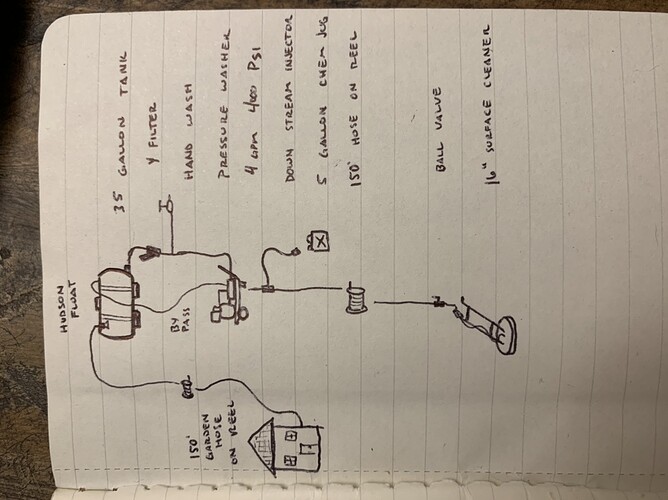 HUDSON
FLOAT
35 GALLON TANK
Y FILTER
HAND WASH
PRESSURE WASHER
4 GPM 4000 PSI
BY
PASS
DOWN STREAM INJECTOR
5 GALLON CHEM JUG
X
150' HOSE ON REEL
BALL VALVE
16" SURFACE CLEANER
150'
GARDEN
HOSE
ON REEL